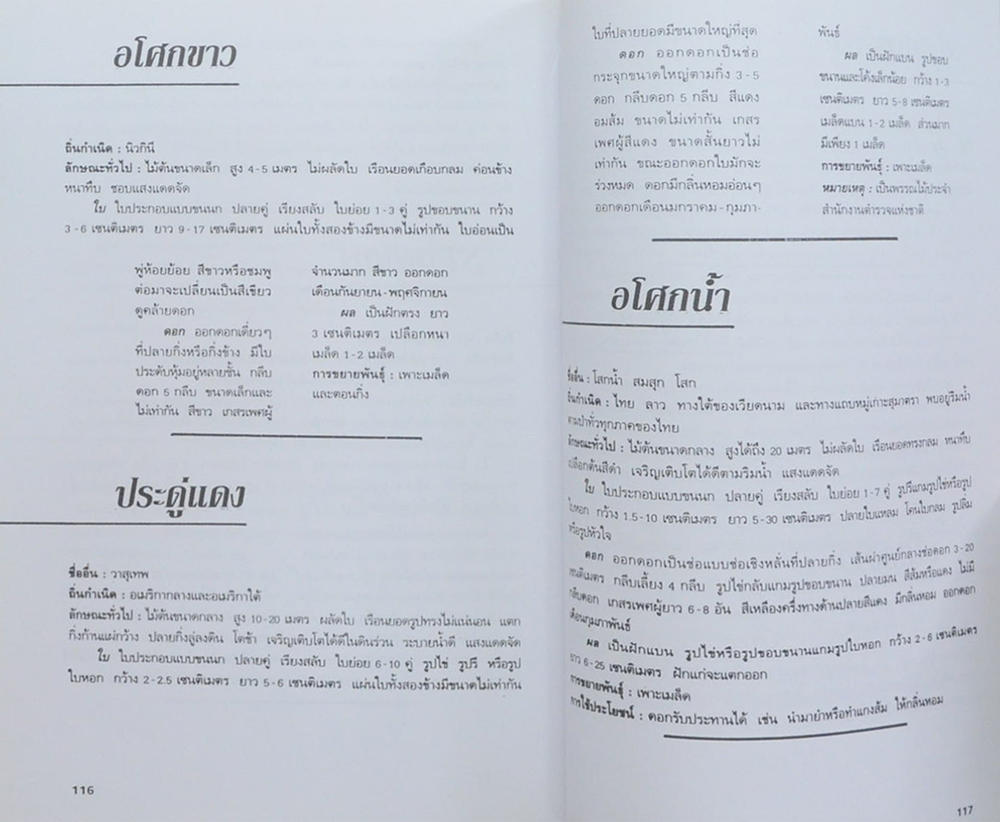 อโศกขาว
ถิ่นกำเนิด : นิวกินี
ลักษณะทั่วไป : ไม้ต้นขนาดเล็ก สูง 4-5 เมตร ไม่ผลัดใบ เรือนยอดเกือบกลม ค่อนข้าง
หนาทึบ ชอบแสงแดดจัด
ใบ ใบประกอบแบบขนนก ปลายคู่ เรียงสลับ ใบย่อย 1-3 คู่ รูปขอบขนาน กว้าง
3-6 เซนติเมตร ยาว 9-17 เซนติเมตร แผ่นใบทั้งสองข้างมีขนาดไม่เท่ากัน ใบอ่อนเป็น
พู่ห้อยย้อย สีขาวหรือชมพู
ต่อมาจะเปลี่ยนเป็นสีเขียว
ดูคล้ายดอก
ดอก ออกดอกเดี่ยวๆ
ที่ปลายกิ่งหรือกิ่งข้าง มีใบ
ประดับหุ้มอยู่หลายชั้น กลีบ
ดอก 5 กลีบ ขนาดเล็กและ
ไม่เท่ากัน สีขาว เกสรเพศผู้
จำนวนมาก สีขาว ออกดอก
เดือนกันยายน-พฤศจิกายน
ผล เป็นฝักตรง ยาว
3 เซนติเมตร เปลือกหนา
เมล็ด 1-2 เมล็ด
การขยายพันธุ์ : เพาะเมล็ด
และตอนกิ่ง
ประดู่แดง
ชื่ออื่น : วาสุเทพ
ถิ่นกำเนิด : อเมริกากลางและอเมริกาใต้
ลักษณะทั่วไป : ไม้ต้นขนาดกลาง สูง 10-20 เมตร ผลัดใบ เรือนยอดรูปทรงไม่แน่นอน แตก
กิ่งก้านแผ่กว้าง ปลายกิ่งลู่ลงดิน โตช้า เจริญเติบโตได้ดีในดินร่วน ระบายน้ำดี แสงแดดจัด
ใบ ใบประกอบแบบขนนก ปลายคู่ เรียงสลับ ใบย่อย 6-10 คู่ รูปไข่ รูปรี หรือรูป
ใบหอก กว้าง 2-2.5 เซนติเมตร ยาว 5-6 เซนติเมตร แผ่นใบทั้งสองข้างมีขนาดไม่เท่ากัน
116
ใบที่ปลายยอดมีขนาดใหญ่ที่สุด
ดอก ออกดอกเป็นช่อ
กระจุกขนาดใหญ่ตามกิ่ง 3-5
ดอก กลีบดอก 5 กลีบ สีแดง
อมส้ม ขนาดไม่เท่ากัน เกสร
เพศผู้สีแดง ขนาดสั้นยาวไม่
เท่ากัน ขณะออกดอกใบมักจะ
ร่วงหมด ดอกมีกลิ่นหอมอ่อนๆ
ออกดอกเดือนมกราคม-กุมภา-
พันธ์
ผล เป็นฝักแบน รูปขอบ
ขนานและโค้งเล็กน้อย กว้าง 1-3
เซนติเมตร ยาว 5-8 เซนติเมตร
เมล็ดแบน 1-2 เมล็ด ส่วนมาก
มีเพียง 1 เมล็ด
การขยายพันธุ์ : เพาะเมล็ด
หมายเหตุ : เป็นพรรณไม้ประจำ
สำนักงานตำรวจแห่งชาติ
อโศกน้ำ
ชื่ออื่น : โสกน้ำ สมสุก โสก
ถิ่นกำเนิด : ไทย ลาว ทางใต้ของเวียดนาม และทางแถบหมู่เกาะสุมาตรา พบอยู่ริมน้ำ
ตามป่าทั่วทุกภาคของไทย
ลักษณะทั่วไป : ไม้ต้นขนาดกลาง สูงได้ถึง 20 เมตร ไม่ผลัดใบ เรือนยอดทรงกลม หนาทึบ
เปลือกต้นสีดำ เจริญเติบโตได้ดีตามริมน้ำ แสงแดดจัด
ใบ ใบประกอบแบบขนนก ปลายคู่ เรียงสลับ ใบย่อย 1-7 คู่ รูปรีแกมรูปไข่หรือรูป
ใบหอก กว้าง 1.5-10 เซนติเมตร ยาว 5-30 เซนติเมตร ปลายใบแหลม โคนใบกลม รูปลิ่ม
หรือรูปหัวใจ
ดอก ออกดอกเป็นช่อแบบช่อเชิงหลั่นที่ปลายกิ่ง เส้นผ่าศูนย์กลางช่อดอก 3-20
เซนติเมตร กลีบเลี้ยง 4 กลีบ รูปไข่กลับแกมรูปขอบขนาน ปลายมน สีส้มหรือแดง ไม่มี
กลีบดอก เกสรเพศผู้ยาว 6-8 อัน สีเหลืองครึ่งทางด้านปลายสีแดง มีกลิ่นหอม ออกดอก
เดือนกุมภาพันธ์
ผล เป็นฝักแบน รูปไข่หรือรูปขอบขนานแกมรูปใบหอก กว้าง 2-6 เซนติเมตร
ยาว 6-25 เซนติเมตร ฝักแก่จะแตกออก
การขยายพันธุ์ : เพาะเมล็ด
การใช้ประโยชน์ : ดอกรับประทานได้ เช่น นำมายำหรือทำแกงส้ม ให้กลิ่นหอม
117